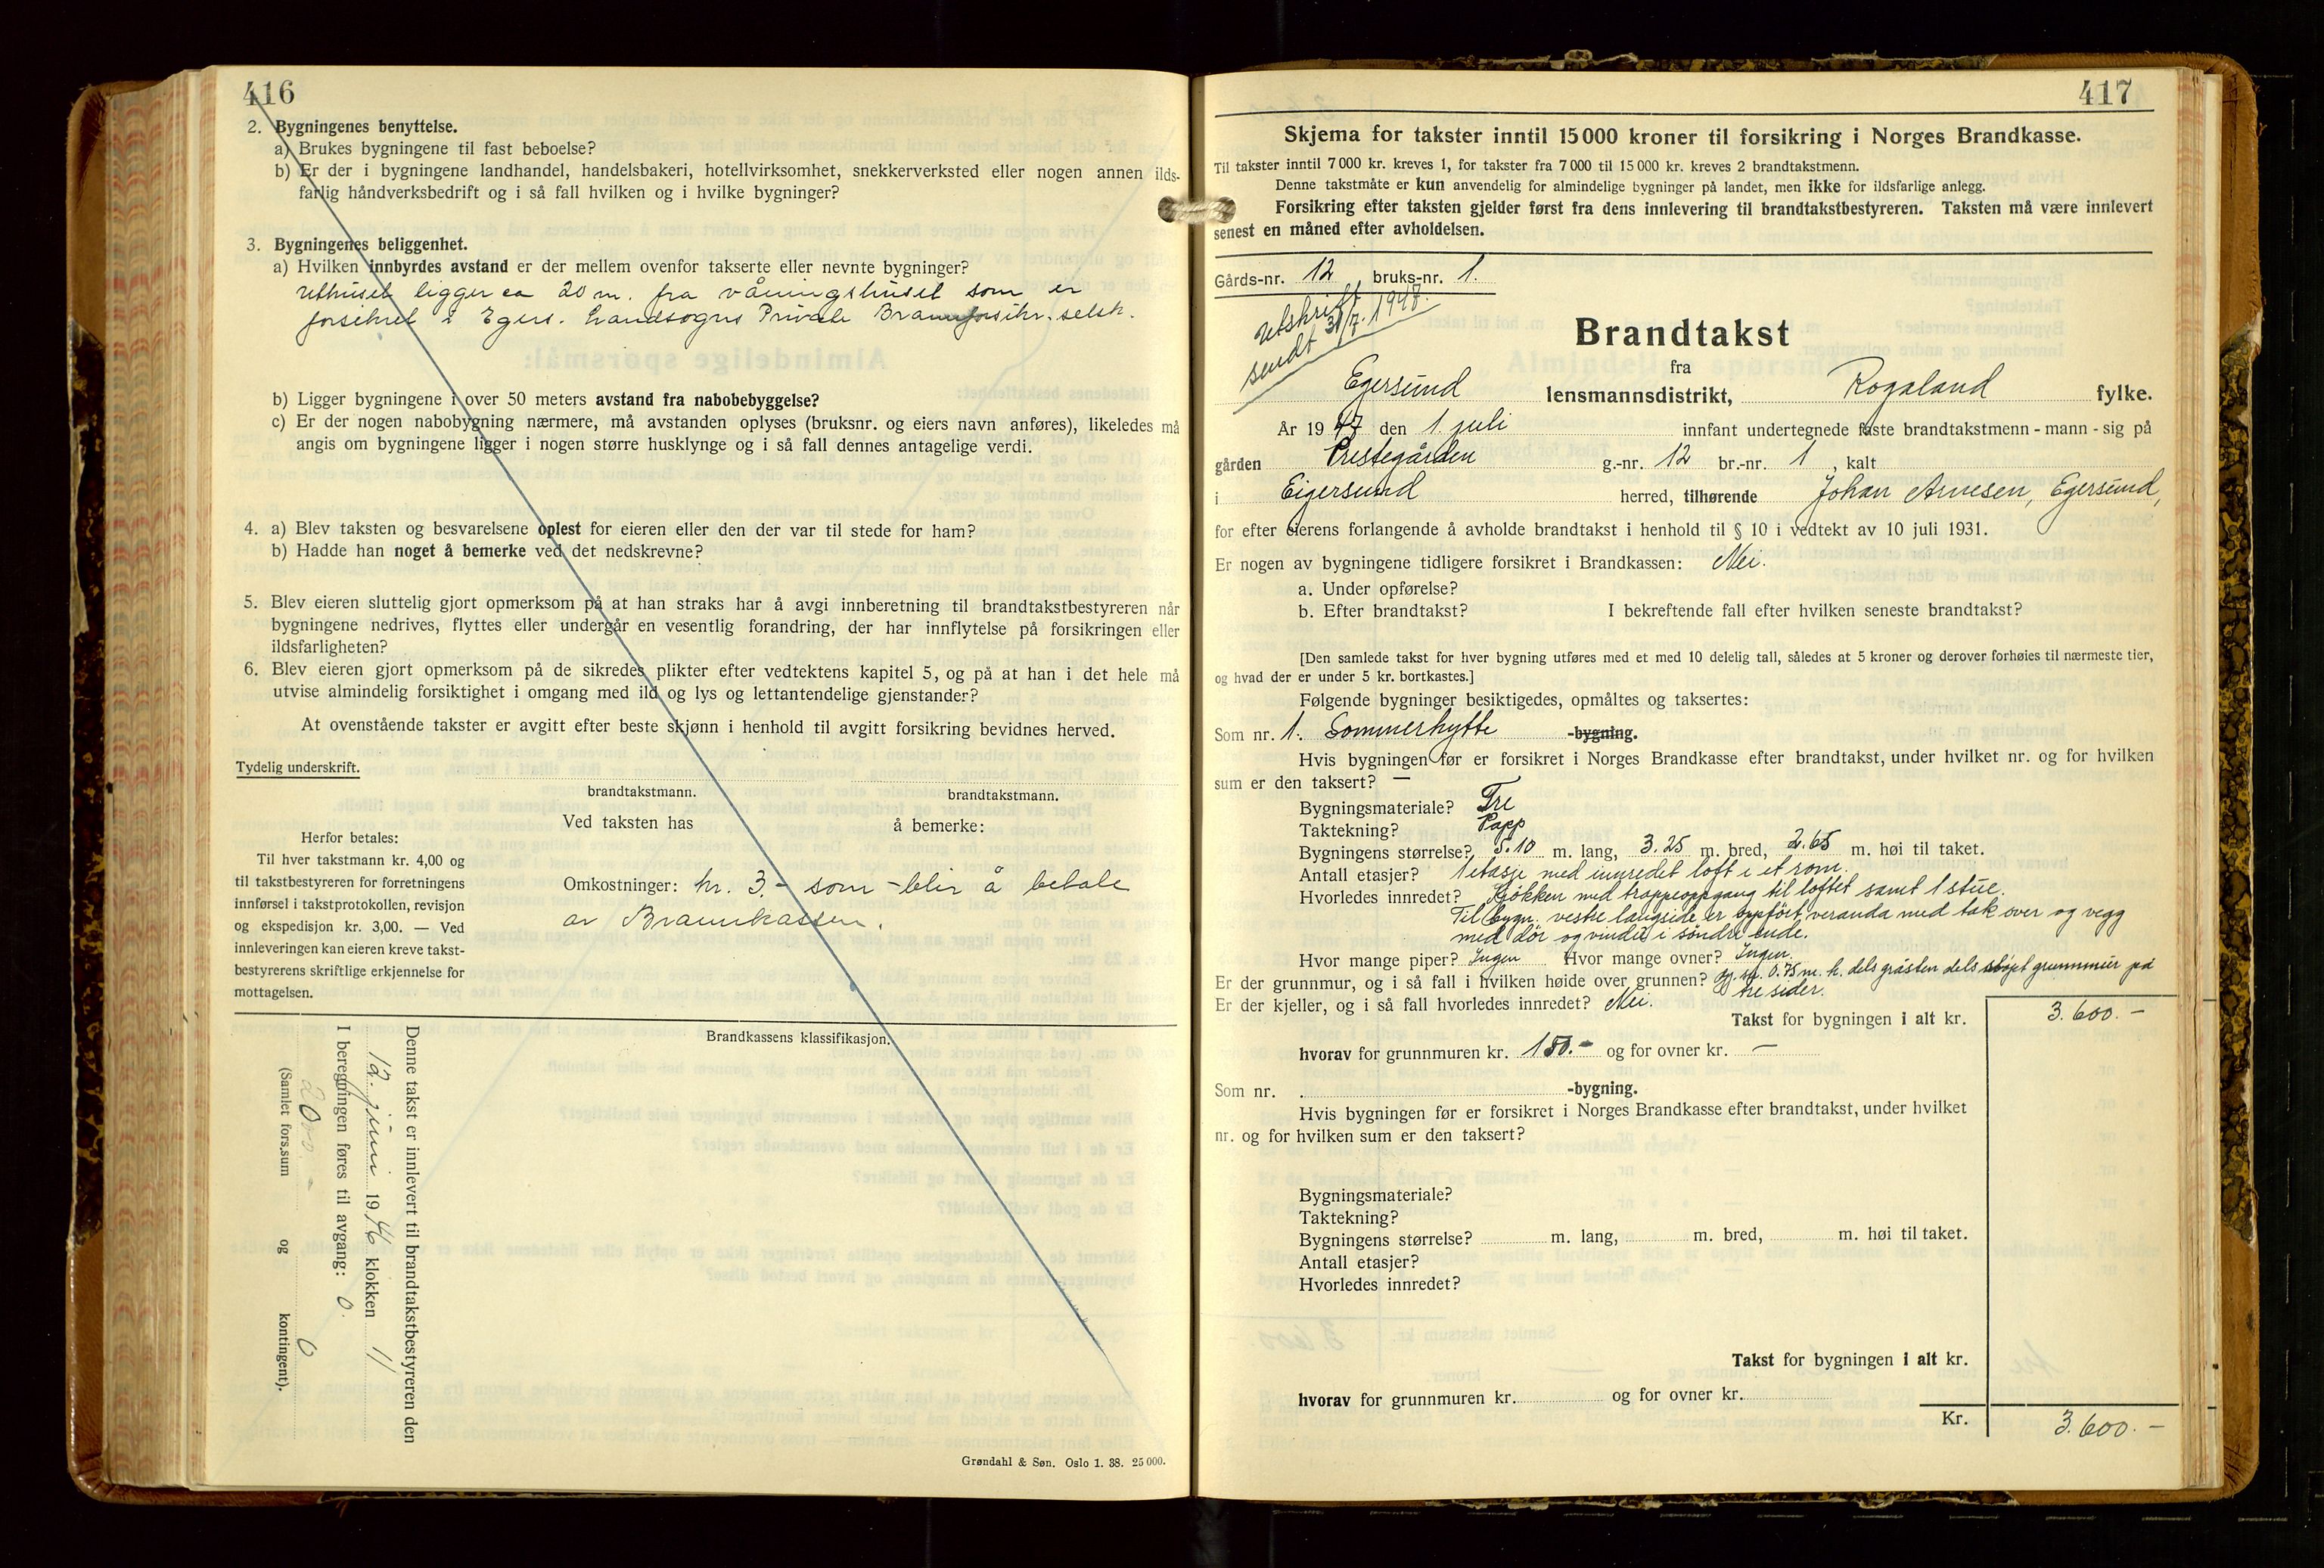 416
2. Bygningenes benyttelse.
a) Brukes bygningene til fast beboelse?
b) Er der i bygningene landhandel, handelsbakeri, hotellvirksomhet, snekkerverksted eller nogen annen ilds-
farlig håndverksbedrift og i så fall hvilken og i hvilke bygninger?
3. Bygningenes beliggenhet.
a) Hvilken innbyrdes avstand er der mellem ovenfor takserte eller nevnte bygninger?
Uthuset ligger ca 20 m. fra våningshuset som er
forsikret i Egers. Landsogns Private Brannforsikr. selsk.
b) Ligger bygningene i over 50 meters avstand fra nabobebyggelse?
c) Er der nogen nabobygning nærmere, må avstanden oplyses (bruksnr. og eiers navn anføres), likeledes må
angis om bygningene ligger i nogen større husklynge og i så fall dennes antagelige verdi.
4. a) Blev taksten og besvarelsene oplest for eieren eller den der var til stede for ham?
b) Hadde han noget å bemerke ved det nedskrevne?
5. Blev eieren sluttelig gjort opmerksom på at han straks har å avgi innberetning til brandtakstbestyreren når
bygningene nedrives, flyttes eller undergår en vesentlig forandring, der har innflytelse på forsikringen eller
ildsfarligheten?
6. Blev eieren gjort opmerksom på de sikredes plikter efter vedtektens kapitel 5, og på at han i det hele må
utvise almindelig forsiktighet i omgang med ild og lys og lettantendelige gjenstander?
At ovenstående takster er avgitt efter beste skjønn i henhold til avgitt forsikring bevidnes herved.
Tydelig underskrift.
brandtakstmann. brandtakstmann.
Ved taksten has å bemerke:
Herfor betales:
Til hver takstmann kr. 4,00 og
til takstbestyreren for forretningens
innførsel i takstprotokollen, revisjon
og ekspedisjon kr. 3,00. — Ved
innleveringen kan eieren kreve takst-
bestyrerens skriftlige erkjennelse for
mottagelsen.
Omkostninger: kr. 3,- som blir å betale
av Brannkassen.
Brandkassens klassifikasjon.
Denne takst er innlevert til brandtakstbestyreren den
12. juni 1946 klokken 11
I beregningen føres til avgang: 0.
2000.- 0
(Samlet fors.sum og kontingent).
Grøndahl & Søn. Oslo 1. 38. 25 000.
417
Skjema for takster inntil 15 000 kroner til forsikring i Norges Brandkasse.
Til takster inntil 7 000 kr. kreves 1, for takster fra 7 000 til 15 000 kr. kreves 2 brandtakstmenn.
Denne takstmåte er kun anvendelig for almindelige bygninger på landet, men ikke for ildsfarlige anlegg.
Forsikring efter taksten gjelder først fra dens innlevering til brandtakstbestyreren. Taksten må være innlevert
senest en måned efter avholdelsen.
Gårds-nr. 12 bruks-nr. 1.
Utskrift
sendt 31/7. 1948.
Brandtakst
fra
Egersund lensmannsdistrikt, Rogaland fylke.
År 1947 den 1. juli innfant undertegnede faste brandtakstmenn - mann - sig på
gården Prestegården g.-nr. 12 br.-nr. 1, kalt
i Eigersund herred, tilhørende Johan Arnesen, Egersund,
for efter eierens forlangende å avholde brandtakst i henhold til § 10 i vedtekt av 10 juli 1931.
Er nogen av bygningene tidligere forsikret i Brandkassen: Nei.
a. Under opførelse?
b. Efter brandtakst? I bekreftende fall efter hvilken seneste brandtakst?
[Den samlede takst for hver bygning utføres med et med 10 delelig tall, således at 5 kroner og derover forhøies til nærmeste tier,
og hvad der er under 5 kr. bortkastes.]
Følgende bygninger besiktigedes, opmåltes og taksertes:
Som nr. 1. Sommerhytte -bygning.
Hvis bygningen før er forsikret i Norges Brandkasse efter brandtakst, under hvilket nr. og for hvilken
sum er den taksert? —
Bygningsmateriale? Tre
Taktekning? Papp
Bygningens størrelse? 5.10 m. lang, 3.25 m. bred, 2.65 m. høi til taket.
Antall etasjer? 1 etasje med innredet loft i et rom.
Hvorledes innredet? Kjøkken med trappeoppgang til loftet samt 1 stue.
Til bygn. vestre langside er oppført veranda med tak over og vegg
med dör og vindu i söndre ende.
Hvor mange piper? Ingen Hvor mange ovner? Ingen.
Er der grunnmur, og i så fall i hvilken høide over grunnen? 0.75 m. h. dels gråsten dels støpt grunnmur på
tre sider.
Er der kjeller, og i så fall hvorledes innredet? Nei.
Takst for bygningen i alt kr. 3.600.-
hvorav for grunnmuren kr. 150.- og for ovner kr. —
Som nr. -bygning.
Hvis bygningen før er forsikret i Norges Brandkasse efter brandtakst, under hvilket
nr. og for hvilken sum er den taksert?
Bygningsmateriale?
Taktekning?
Bygningens størrelse? m. lang, m. bred, m. høi til taket.
Antall etasjer?
Hvorledes innredet?
Takst for bygningen i alt kr.
hvorav for grunnmuren kr. og for ovner kr.
Kr. 3.600.-